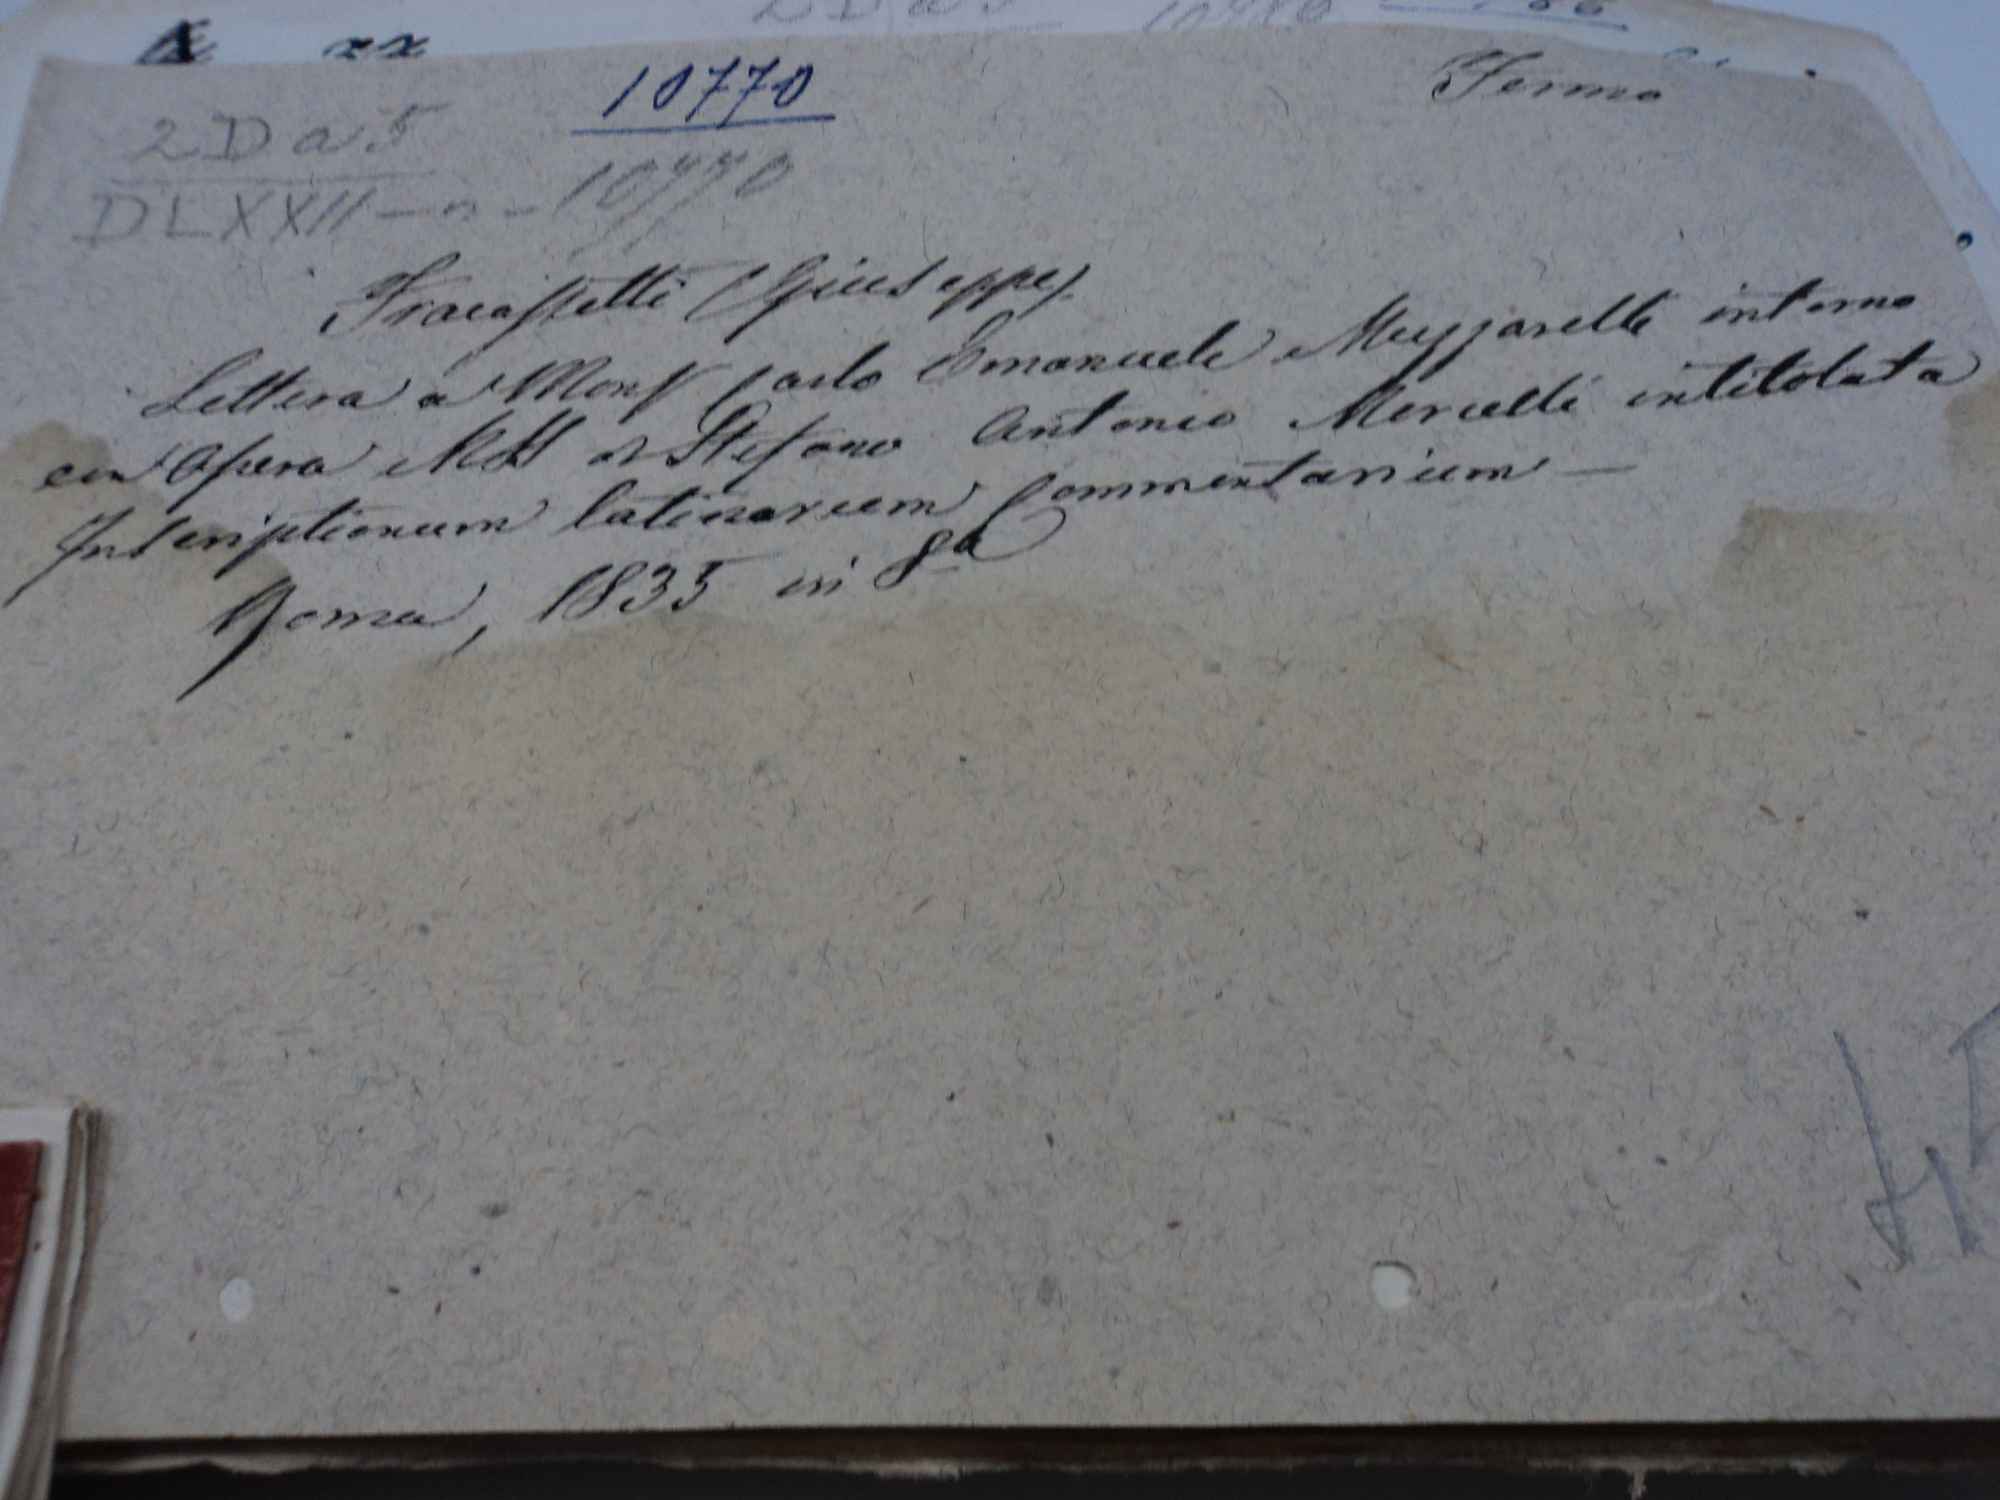 2 D a 5
10770
Fermo
DLXXII — n - 10770
Fracassetti (Giuseppe)
Lettera a Mons Carlo Emanuele Muzzarelli intorno
un' Opera MSS di Stefano Antonio Morcelli intitolata
Inscriptionum latinarum Commentarium —
Roma, 1835 in 8a